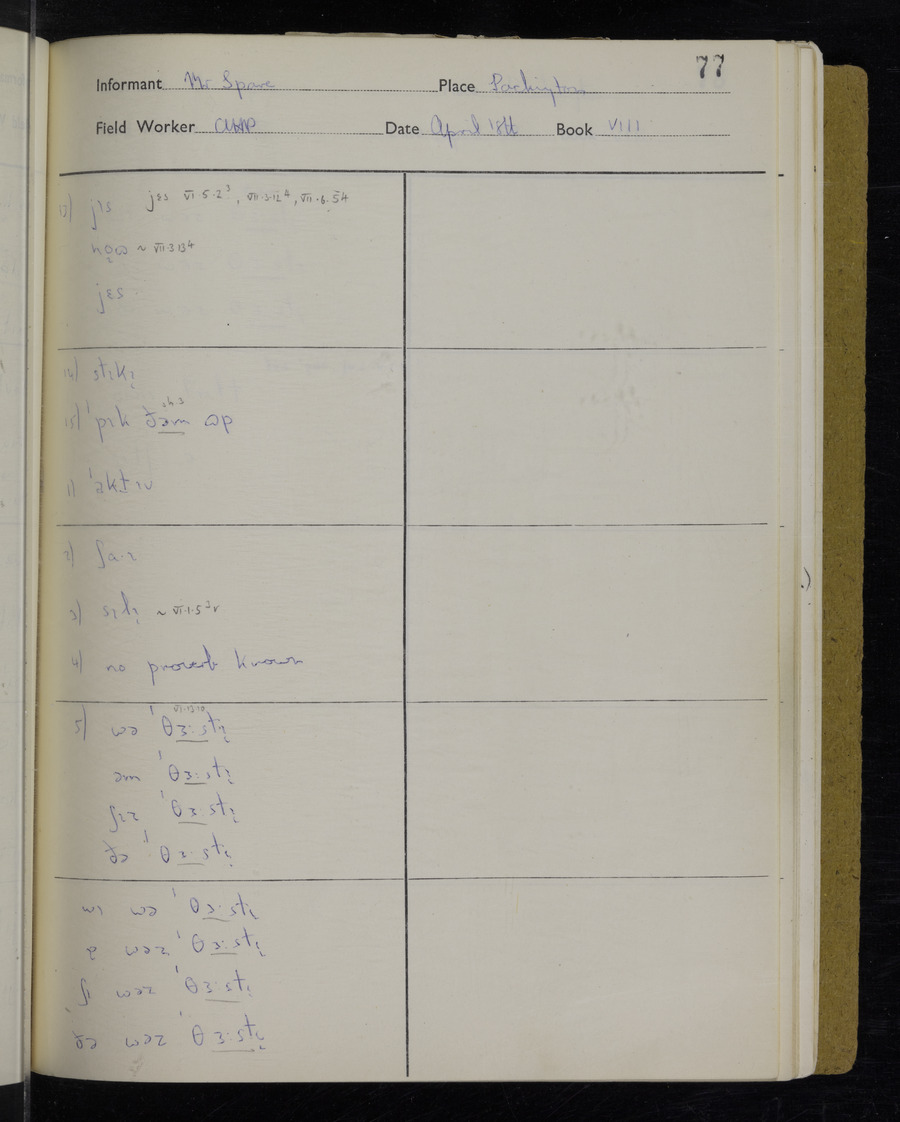 77
Informant Mr Spare Place
Field Worker Date April 18th Book VIII
13) jɪs jɛs VI·5·2³, VII·3·12⁴, VII·6·54
~ VII·3·13⁴
jɛs
14) stɪkɪ̣
15) ˈpɪk ðəm ɷp
1) ˈaktɪv
2)
3) sɪlɪ̣ ~ VI·1·5
4) no proverb known
5) wə ˈθɜːstɪ̣
əm ˈθɜːstɪ̣
ʃɪz ˈθɜːstɪ̣
ðə ˈθɜːstɪ̣
wɪ wə ˈθɜːstɪ̣
wəz ˈθɜːstɪ̣
ʃɪ wəz ˈθɜːstɪ̣
ðə wəz ˈθɜːstɪ̣